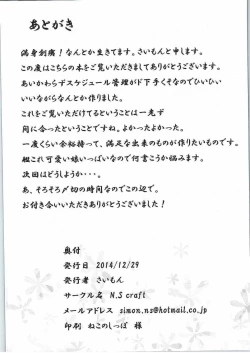 あとがき
満身創痍！なんとか生きてます。さいもんと申します。
この度はこちらの本をご覧いただきましてありがとうございます。
あいかわらずスケジュール管理がド下手くそなのでひいひい
いいながらなんとか作りました。
これをご覧いただけてるということは一応ず
間に合ったということですね。よかったよかった。
一度くらい余裕持って、満足な出来のものが作りたいものです。
艦これ可愛い娘いっぱいなので何書こうか悩みます。
次回はどうしようか・・・。
あ、そろそろ〆切の時間なのでこの辺で。
お付き合いいただきありがとうございました！
奥付
発行日 2014/12/29
発行者 さいもん
サークル名 N.S craft
メールアドレス simon.ns@hotmail.co.jp
印刷 ねこのしっぽ 様